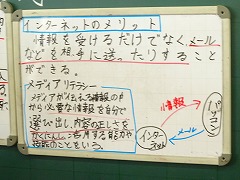 インターネットのメリット
情報を受けるだけでなく、メール
などを相手に送ったりすること
ができる。
メディアリテラシー
メディアが伝える情報の中
から必要な情報を自分で
選び出し、内容の正しさを
かくにんし、活用する能力や
技能のことをいう。
情報
パソコン
インターネット
メール